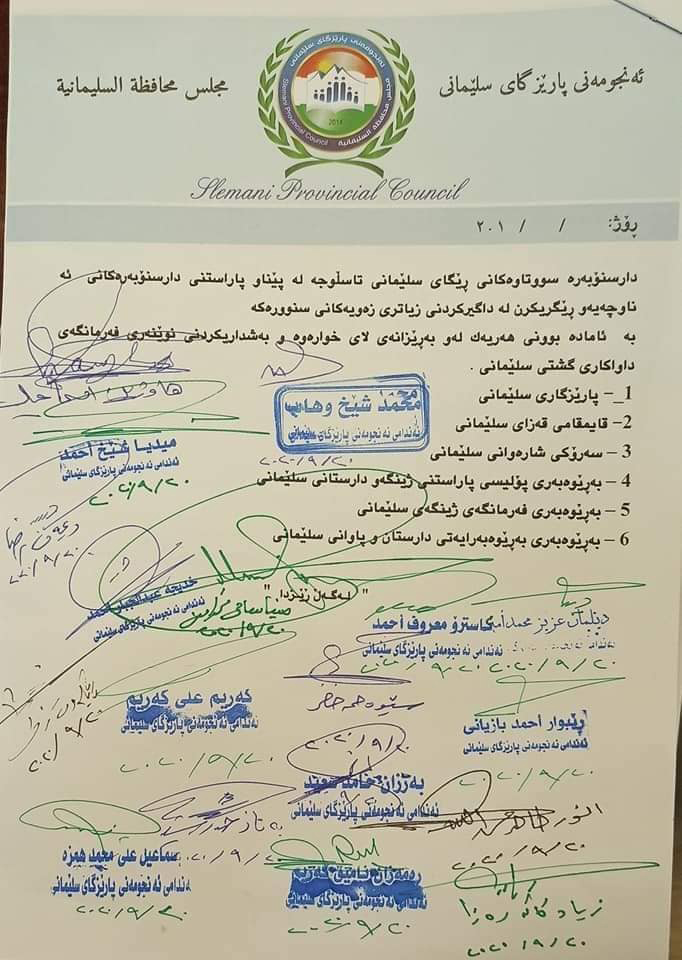 ئەنجومەنی پارێزگای سلێمانی
مجلس محافظة السليمانية
ئەنجومەنی پارێزگای سلێمانی
مجلس محافظة السليمانية
Slemani Provincial Council
2014
Slemani Provincial Council
ڕۆژ: / / ٢٠١
دارسنۆبەرە سووتاوەکانی ڕێگای سلێمانی تاسڵوجە لە پێناو پاراستنی دارسنۆبەرەکانی ئە
ناوچەیەو ڕێگریکرن لە داگیرکردنی زیاتری زەویەکانی سنوورەکە
بە ئامادە بوونی هەریەك لەو بەڕێزانەی لای خوارەوە و بەشداریکردنی نوێنەری فەرمانگەی
داواکاری گشتی سلێمانی .
1_ پارێزگاری سلێمانی
2- قایمقامی قەزای سلێمانی
3 - سەرۆکی شارەوانی سلێمانی
4 - بەڕێوەبەری پۆلیسی پاراستنی ژینگەو دارستانی سلێمانی
5 - بەڕێوەبەری فەرمانگەی ژینگەی سلێمانی
6 - بەڕێوەبەری بەڕێوەبەرایەتی دارستان و پاوانی سلێمانی
" لەگەڵ ڕێزدا. "
محمد شێخ وهاب
ئەندامی ئەنجومەنی پارێزگای سلێمانی
٢٠٢٠/٩/٢٠
میدیا شێخ أحمد
ئەندامی ئەنجومەنی پارێزگای سلێمانی
٢٠٢٠/٩/٢٠
٢٠٢٠/٩/٢٠
خدیجە عبدالجبار احمد
ئەندامی ئەنجومەنی پارێزگای سلێمانی
٢٠٢٠/٩/٢٠
دیلمان عزیز محمد أمین
٢٠٢٠/٩/٢٠
کاسترۆ معروف أحمد
ئەندامی ئەنجومەنی پارێزگای سلێمانی
٢٠٢٠/٩/٢٠
٢٠٢٠/٩/٢٠
کەریم علی کەریم
ئەندامی ئەنجومەنی پارێزگای سلێمانی
٢٠٢٠/٩/٢٠
٢٠٢٠/٩/٢٠
ڕێبوار أحمد بازیانی
ئەندامی ئەنجومەنی پارێزگای سلێمانی
٢٠٢٠/٩/٢٠
بەرزان حامد
ئەندامی ئەنجومەنی پارێزگای سلێمانی
٢٠٢٠/٩/٢٠
٢٠٢٠/٩/٢٠
سماعیل علی محمد همزه
ئەندامی ئەنجومەنی پارێزگای سلێمانی
٢٠٢٠/٩/٢٠
ڕەمەزان
ئەندامی ئەنجومەنی پارێزگای سلێمانی
٢٠٢٠/٩/٢٠
زیاد کاکە ڕەزا
٢٠٢٠/٩/٢٠